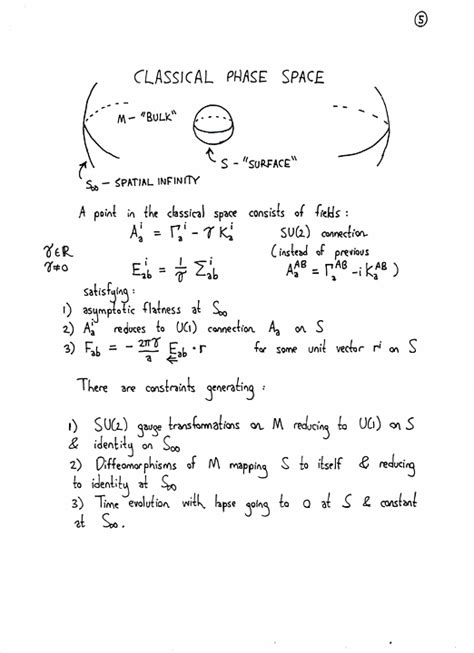 ⑤
CLASSICAL PHASE SPACE
M – "BULK"
S – "SURFACE"
S∞ – SPATIAL INFINITY
A point in the classical space consists of fields :
A^i_a = Γ^i_a - γ K^i_a   SU(2) connection
γ∈R   (instead of previous
γ≠0   E^i_ab = 1/γ Σ^i_ab   A^AB_a = Γ^AB_a - i K^AB_a )
satisfying :
1) asymptotic flatness at S∞
2) A^i_a reduces to U(1) connection A_a on S
3) F_ab = - 2πγ/a E_ab · r   for some unit vector r^i on S
There are constraints generating :
1) SU(2) gauge transformations on M reducing to U(1) on S
& identity on S∞
2) Diffeomorphisms of M mapping S to itself & reducing
to identity at S∞
3) Time evolution with lapse going to 0 at S & constant
at S∞ .